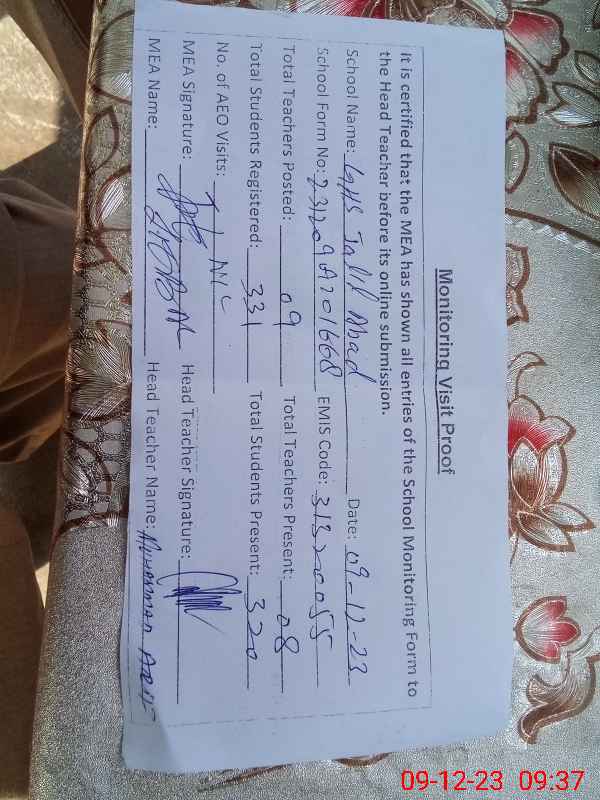 Monitoring Visit Proof
It is certified that the MEA has shown all entries of the School Monitoring Form to
the Head Teacher before its online submission.
School Name: GHS Jalil Abad Date: 09-12-23
School Form No: EMIS Code: 31320055
Total Teachers Posted: 09 Total Teachers Present: 08
Total Students Registered: 331 Total Students Present: 320
No. of AEO Visits:
MEA Signature: Head Teacher Signature:
MEA Name: Head Teacher Name: Muhammad
09-12-23 09:37